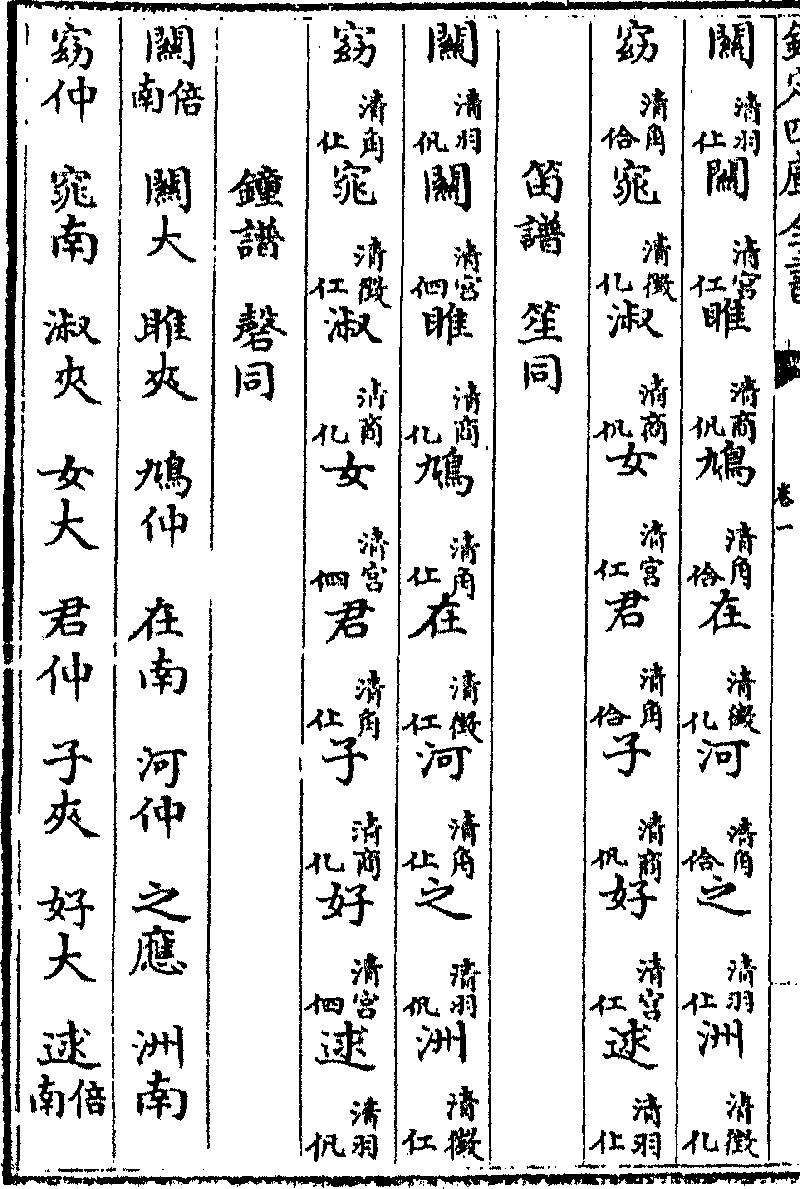 欽定四庫全書 卷一
關清羽仩關清宮仜雎清商仉鳩清角佮在清徵亿河清角佮之清羽仩洲清徵亿
窈清角佮窕清徵亿淑清商仉女清宮仜君清角佮子清商仉好清宮仜逑清羽仩
笛譜 笙同
關清羽仉關清宮伵雎清商亿鳩清角仩在清徵仜河清角仩之清羽仉洲清徵仜
窈清角仩窕清徵仜淑清商亿女清宮伵君清角仩子清商亿好清宮伵逑清羽仉
鐘譜 磬同
關倍南 關大 雎夾 鳩仲 在南 河仲 之應 洲南
窈仲 窕南 淑夾 女大 君仲 子夾 好大 逑倍南